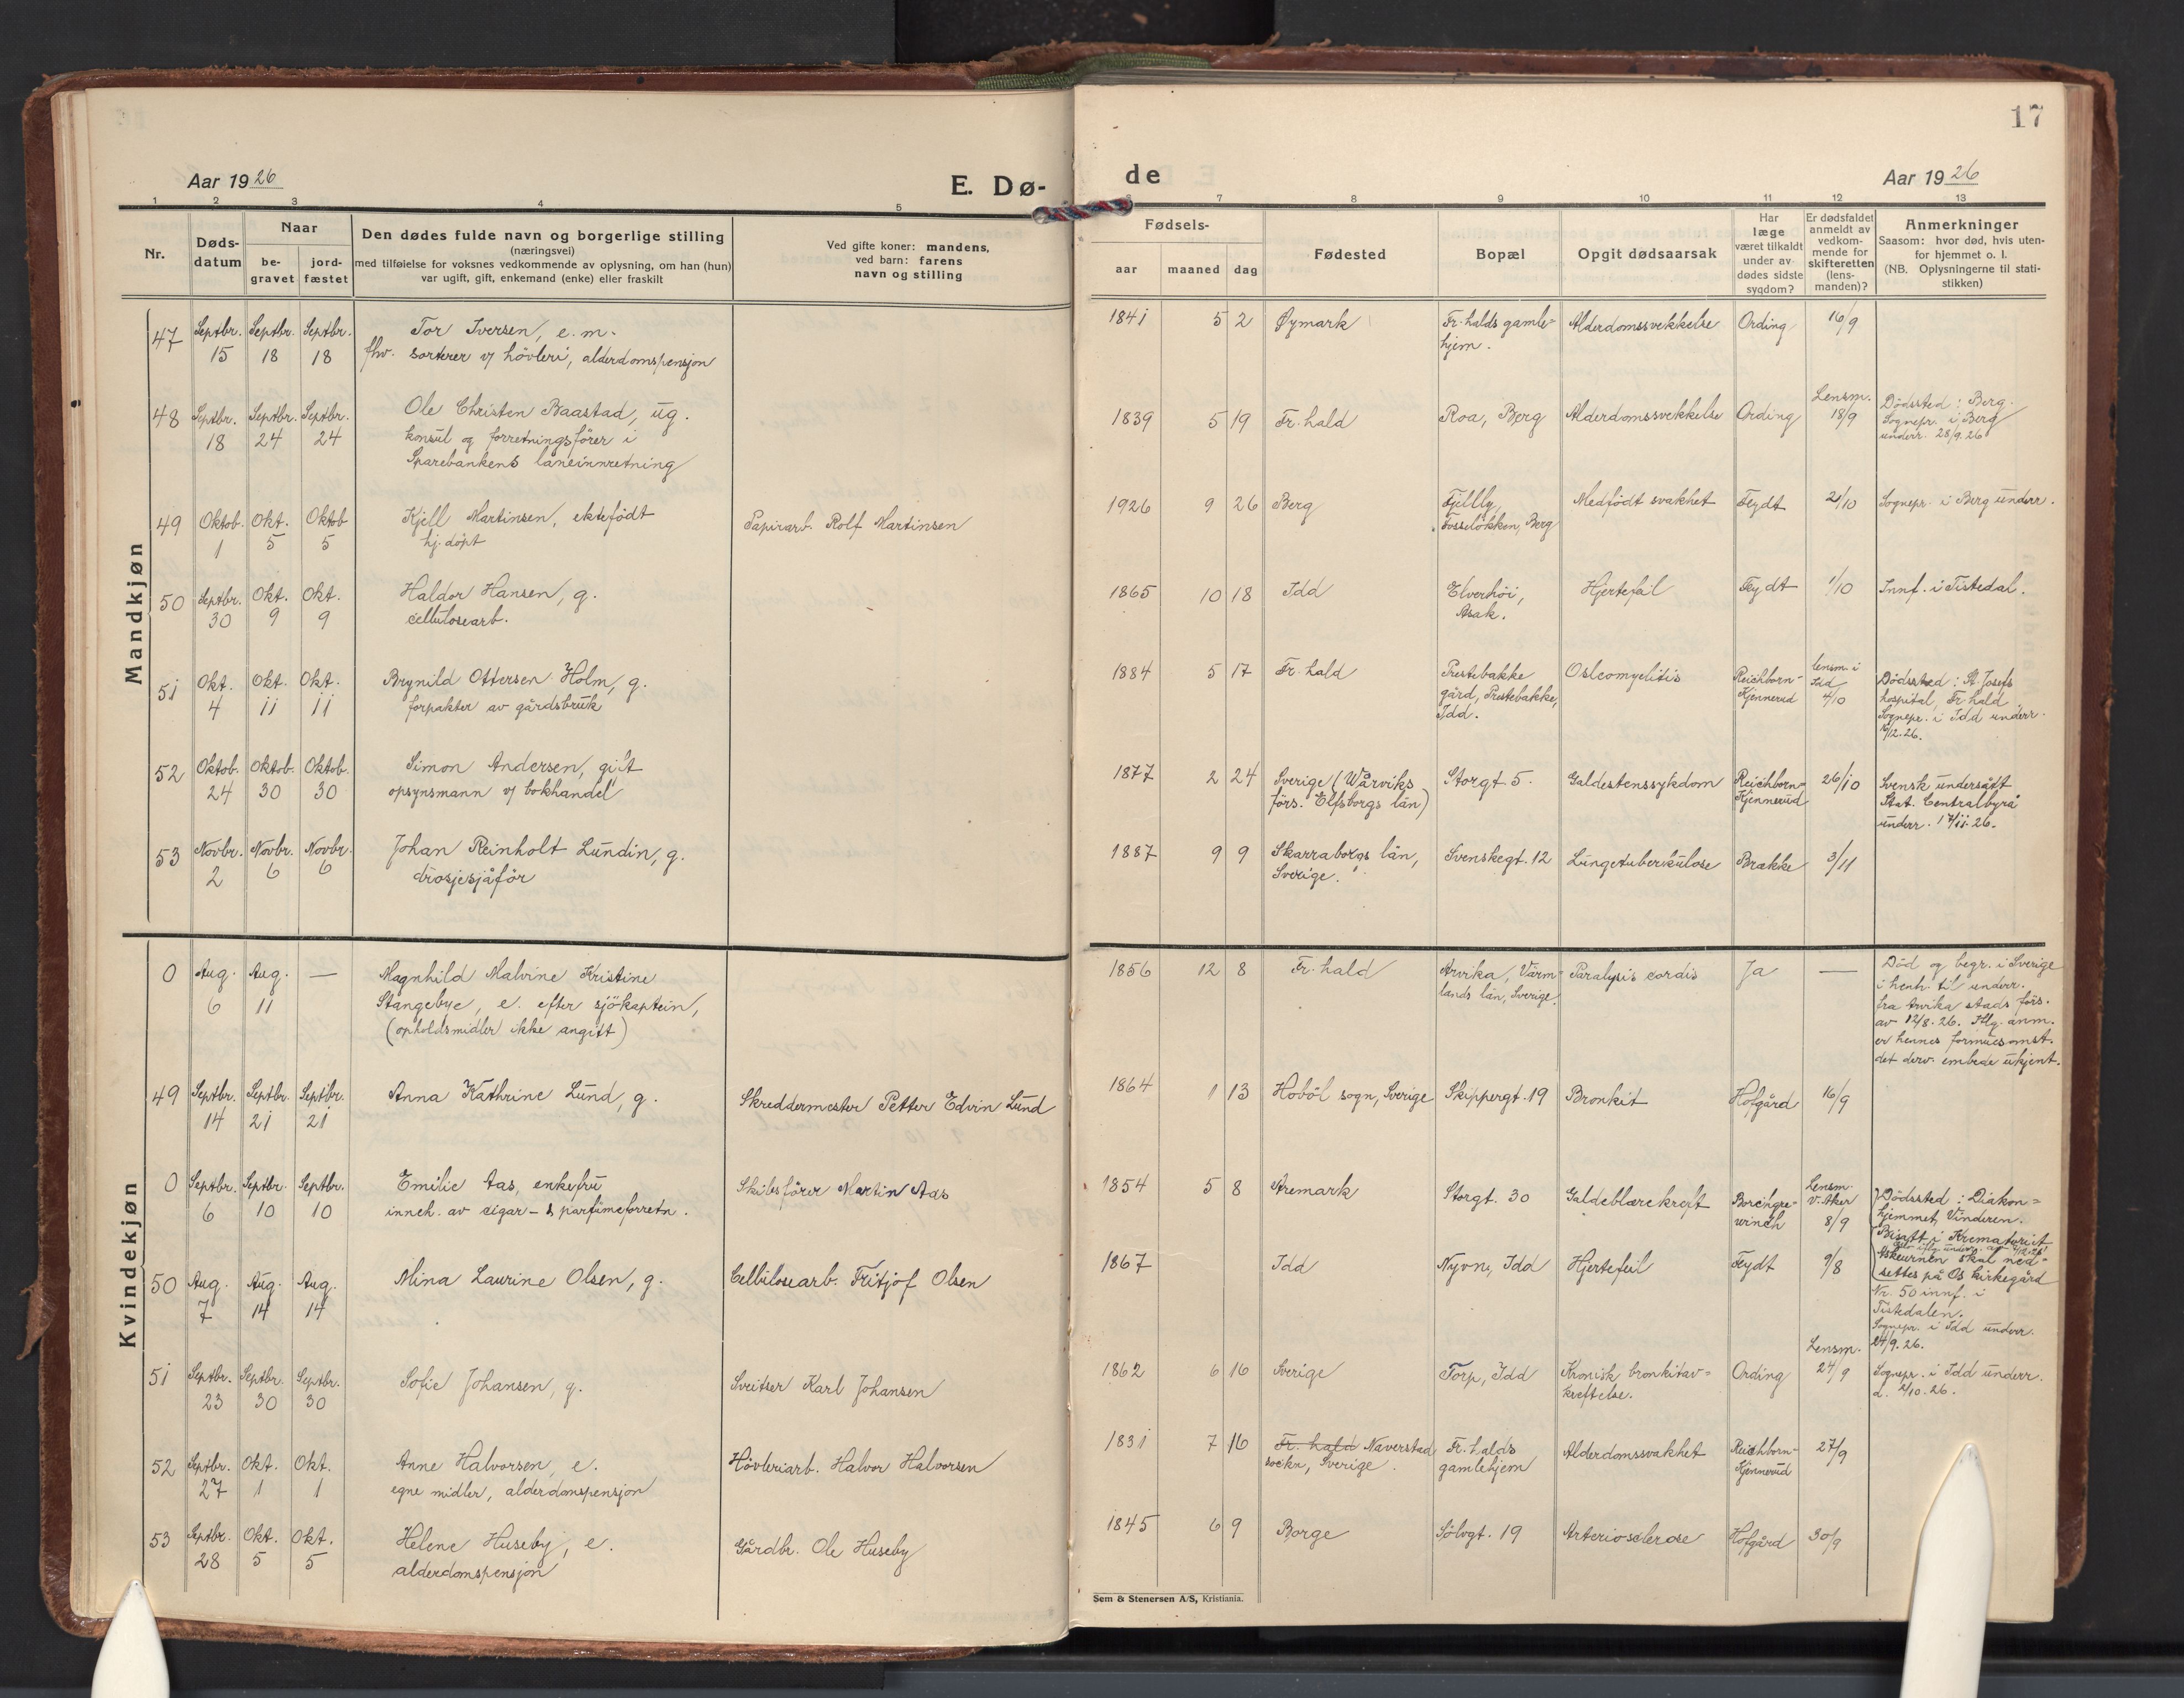 17
Aar 1926
E. Dø-
de
Aar 1926
1 2 3 4 5
7 8 9 10 11 12 13
Nr.
Døds-
datum
Naar
be-
gravet
jord-
fæstet
Den dødes fulde navn og borgerlige stilling
(næringsvei)
med tilføielse for voksnes vedkommende av oplysning, om han (hun)
var ugift, gift, enkemand (enke) eller fraskilt
Ved gifte koner: mandens,
ved barn: farens
navn og stilling
Fødsels-
aar maaned dag
Fødested
Bopæl
Opgit dødsaarsak
Har
læge
været tilkaldt
under av-
dødes sidste
sygdom?
Er dødsfaldet
anmeldt av
vedkom-
mende for
skifteretten
(lens-
manden)?
Anmerkninger
Saasom: hvor død, hvis uten-
for hjemmet o. l.
(NB. Oplysningerne til stati-
stikken)
Mandkjøn
47 Septbr. Septbr. Septbr. Tor Iversen, e. m.
15 18 18 fhv. sorterer v/ høvleri, alderdomspensjon
1841 5 2 Øymark Fr.halds gamle- Alderdomssvekkelse Ording 16/9
hjem.
48 Septbr. Septbr. Septbr. Ole Christen Baastad, ug.
18 24 24 konsul og forretningsfører i
Sparebankens låneinnretning
1839 5 19 Fr.hald Roa, Berg Alderdomssvekkelse Ording Lensm.
18/9
Dödssted: Berg.
Sognepr. i Berg
underr. 28/9.26
49 Oktob. Okt. Oktob Kjell Martinsen, ektefödt
1 5 5 hj. döpt
Papirarb. Rolf Martinsen
1926 9 26 Berg Fjellby, Medfödt svakhet Feydt 2/10 Sognepr. i Berg underr.
Fosselökken, Berg
50 Septbr. Okt. Okt. Haldor Hansen, g.
30 9 9 cellulosearb.
1865 10 18 Idd Elverhöi, Hjertefeil Feydt 1/10 Innf. i Tistedal.
Asak.
51 Okt. Okt. Okt. Brynild Ottersen Holm, g.
4 11 11 forpakter av gårdsbruk
1884 5 17 Fr.hald Prestebakke Osteomyelitis Reichborn-
gård, Prestebakke, Kjennerud
Idd.
lensm. i
Idd
4/10
Dödssted: St. Josefs
hospital, Fr.hald
Sognepr. i Idd underr.
12.26.
52 Oktob. Oktob. Oktob. Simon Andersen, gift
24 30 30 opsynsmann v/ bokhandel
1877 2 24 Sverige (Wårviks Storgt. 5. Galdestenssykdom Reichborn- 26/10
förs. Elfsborgs län) Kjennerud
Svensk undersått
Stat. Centralbyrå
underr. 17/11.26.
53 Novbr. Novbr. Novbr. Johan Reinholt Lundin, g.
2 6 6 drosjesjåför
1887 9 9 Skarraborgs län, Svenskegt. 12 Lungetuberkulose Brække 3/11
Sverige.
Kvindekjøn
0 Aug. Aug. — Magnhild Malvine Kristine
6 11 Stangebye, e. efter sjökaptein,
(opholdsmidler ikke angitt)
1856 12 8 Fr.hald Arvika, Värm- Paralysis cordis Ja —
lands län, Sverige.
Död og begr. i Sverige
i henh. til underr.
fra Arvika stads förs.
av 12/8.26. Iflg. anm.
er hennes formuesomst.
det derv. embede ukjent.
49 Septbr. Septbr. Septbr. Anna Kathrine Lund, g.
14 21 21
Skreddermester Petter Edvin Lund
1864 1 13 Hoböl sogn, Sverige Skippergt. 19 Bronkit Hofgård 16/9
0 Septbr. Septbr. Septbr. Emilie Aas, enkefru
6 10 10 inneh. av cigar- & parfümeforretn.
Skibsförer Martin Aas
1854 5 8 Aremark Storgt. 30 Galdeblærekreft Borchgre-
winch
Lensm.
V. Aker
8/9
Dödssted: Diakon-
hjemmet, Vinderen.
Bisatt i Krematoriet
Askeurnen skal ned-
settes på Os kirkegård
50 Aug. Aug. Aug. Mina Laurine Olsen, g.
7 14 14
Cellulosearb. Fritjof Olsen
1867 Idd Nyvn, Idd Hjertefeil Feydt 9/8
Nr. 50 innf. i
Tistedalen.
Sognepr. i Idd underr.
24/9.26.
51 Septbr. Septbr. Septbr. Sofie Johansen, g.
23 30 30
Sveitser Karl Johansen
1862 6 16 Sverige Torp, Idd Kronisk bronkitav- Ording
kreftelse.
Lensm.
24/9
Sognepr. i Idd underr.
d. 2/10.26.
52 Septbr. Okt. Okt. Anne Halvorsen, e.
27 1 1 egne midler, alderdomspensjon
Hövleriarb. Halvor Halvorsen
1831 7 16 Fr.hald Naverstad Fr.halds Alderdomssvakhet Reichborn- 27/9
sockn, Sverige. gamlehjem Kjennerud
53 Septbr. Okt. Okt. Helene Huseby, e.
28 5 5 alderdomspensjon
Gårdbr. Ole Huseby
1845 6 9 Borge Sölvgt. 19 Arteriosclerose Hofgård 30/9
Sem & Stenersen A/S, Kristiania.